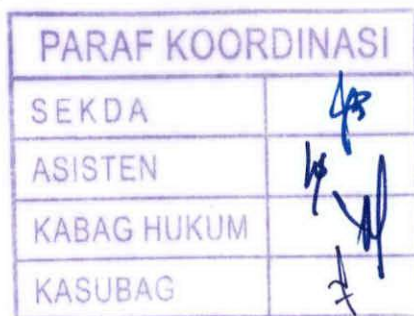 PARAF KOORDINASI
SEKDA
ASISTEN
KABAG HUKUM
KASUBAG